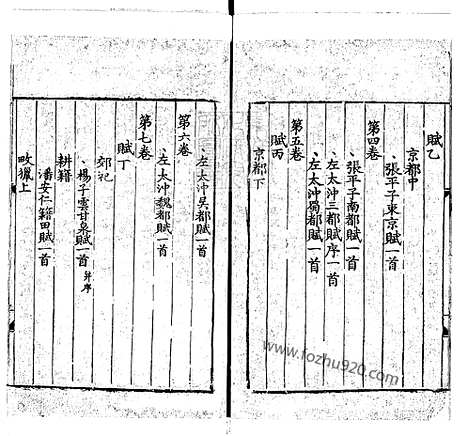 賦乙
京都中
張平子東京賦一首
第四卷
張平子南都賦一首
左太沖三都賦序一首
左太沖蜀都賦一首
第五卷
賦丙
京都下
左太沖吳都賦一首
第六卷
左太沖魏都賦一首
第七卷
賦丁
郊祀
楊子雲甘泉賦一首 并序
耕籍
潘安仁籍田賦一首
畋獵上
www.fozhu920.com